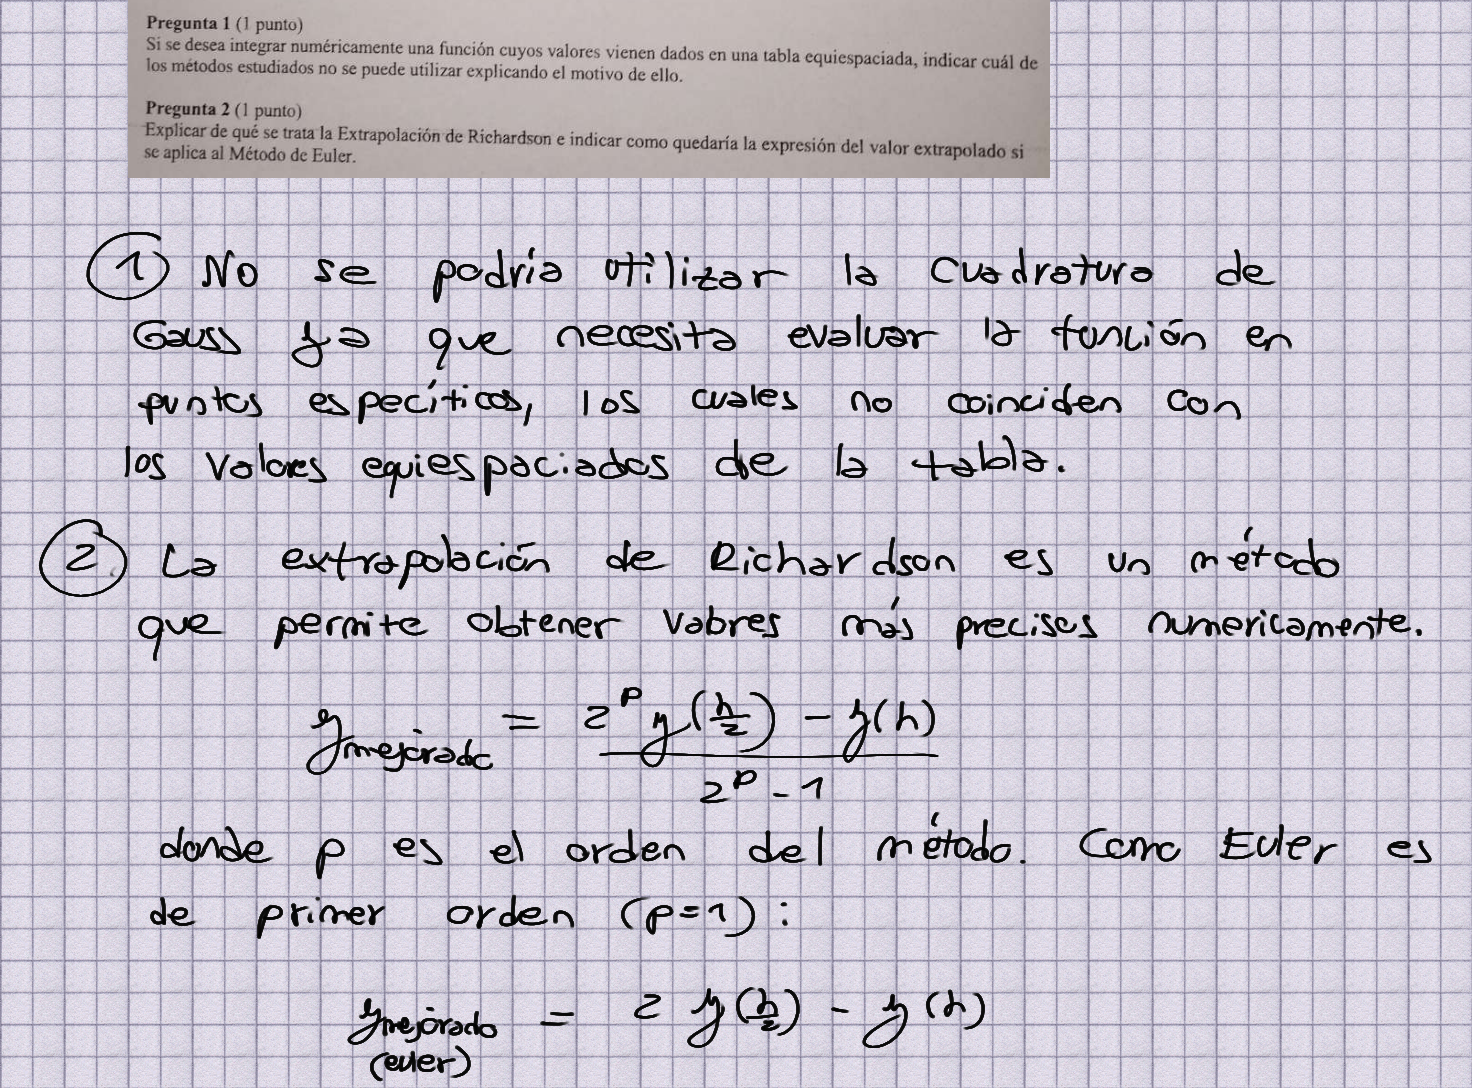 Pregunta 1 (1 punto)
Si se desea integrar numéricamente una función cuyos valores vienen dados en una tabla equiespaciada, indicar cuál de
los métodos estudiados no se puede utilizar explicando el motivo de ello.
Pregunta 2 (1 punto)
Explicar de qué se trata la Extrapolación de Richardson e indicar como quedaría la expresión del valor extrapolado si
se aplica al Método de Euler.
① No se podría utilizar la Cuadratura de
Gauss ya que necesita evaluar la función en
puntos específicos, los cuales no coinciden con
los valores equiespaciados de la tabla.
② La extrapolación de Richardson es un método
que permite obtener valores más precisos numericamente.
y_mejorado = (2^p y(h/2) - y(h)) / (2^p - 1)
donde p es el orden del método. Como Euler es
de primer orden (p=1):
y_mejorado (euler) = 2 y(h/2) - y(h)